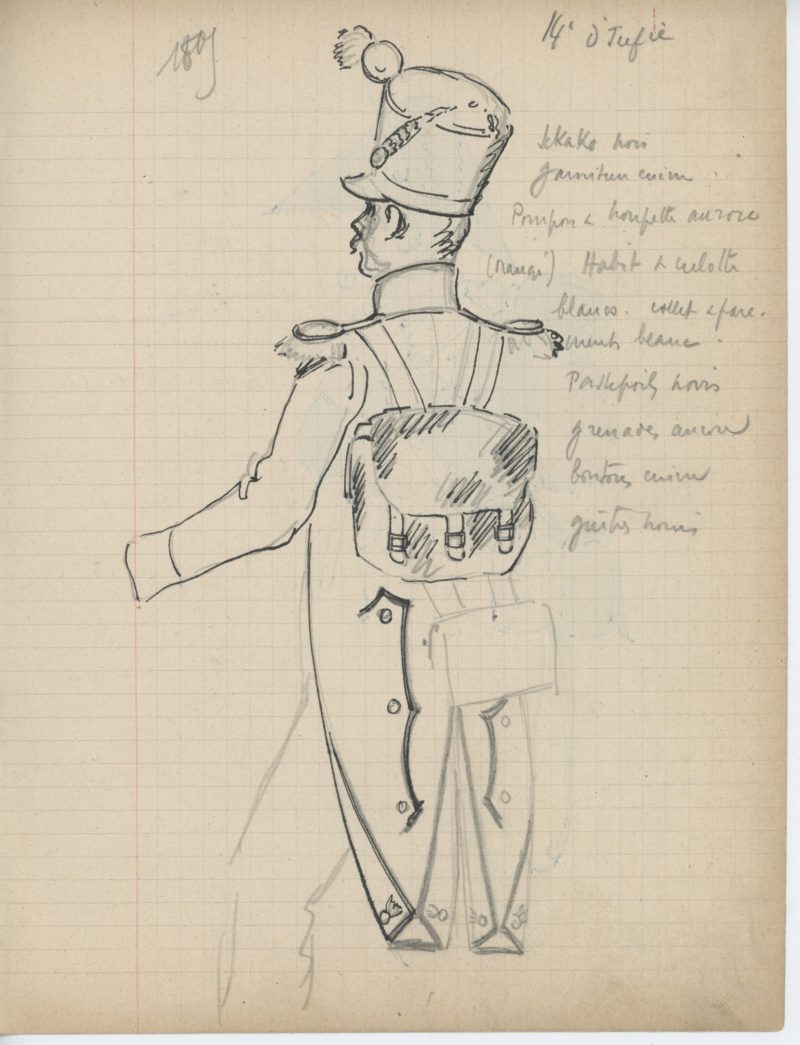 1805
14e d'Infie
Schako noir
garniture cuivre.
Pompon & houpette aurore
(orangé) Habit & culotte
blancs. collet & pare.
ments blancs.
Passepoils noirs
grenades aurore
boutons cuivre
guêtres noires